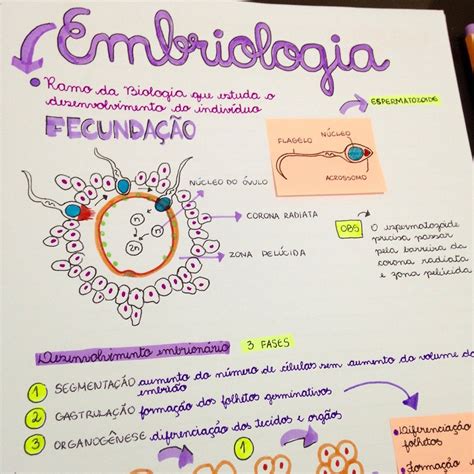 Embriologia
Ramo da Biologia que estuda o
desenvolvimento do indivíduo
FECUNDAÇÃO
ESPERMATOZOIDE
FLAGELO
NÚCLEO
ACROSSOMO
NÚCLEO DO ÓVULO
CORONA RADIATA
ZONA PELÚCIDA
n
n
2n
OBS
O espermatozoide
precisa passar
pela barreira da
corona radiata
e zona pelúcida
Desenvolvimento embrionário
3 FASES
1 SEGMENTAÇÃO aumento do número de células sem aumento do volume do
embrião
2 GASTRULAÇÃO formação dos folhetos germinativos
3 ORGANOGÊNESE diferenciação dos tecidos e orgãos
1
Diferenciação
folhetos
Formação